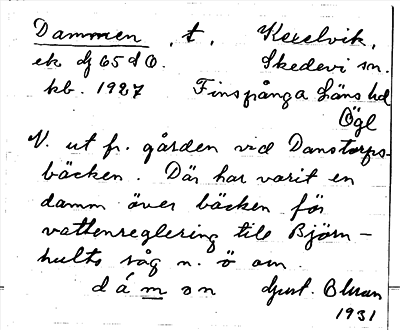 Dammen, t, Kexelvik,
ek dj 65 d O. Skedevi sn.
kb. 1927 Finspånga Läns hd
Ögl
N. ut fr. gården vid Danstorps-
bäcken. Där har varit en
damm över bäcken för
vattenreglering till Björn-
hults såg n. ö om.
dámən Gust. Ulvan
1931